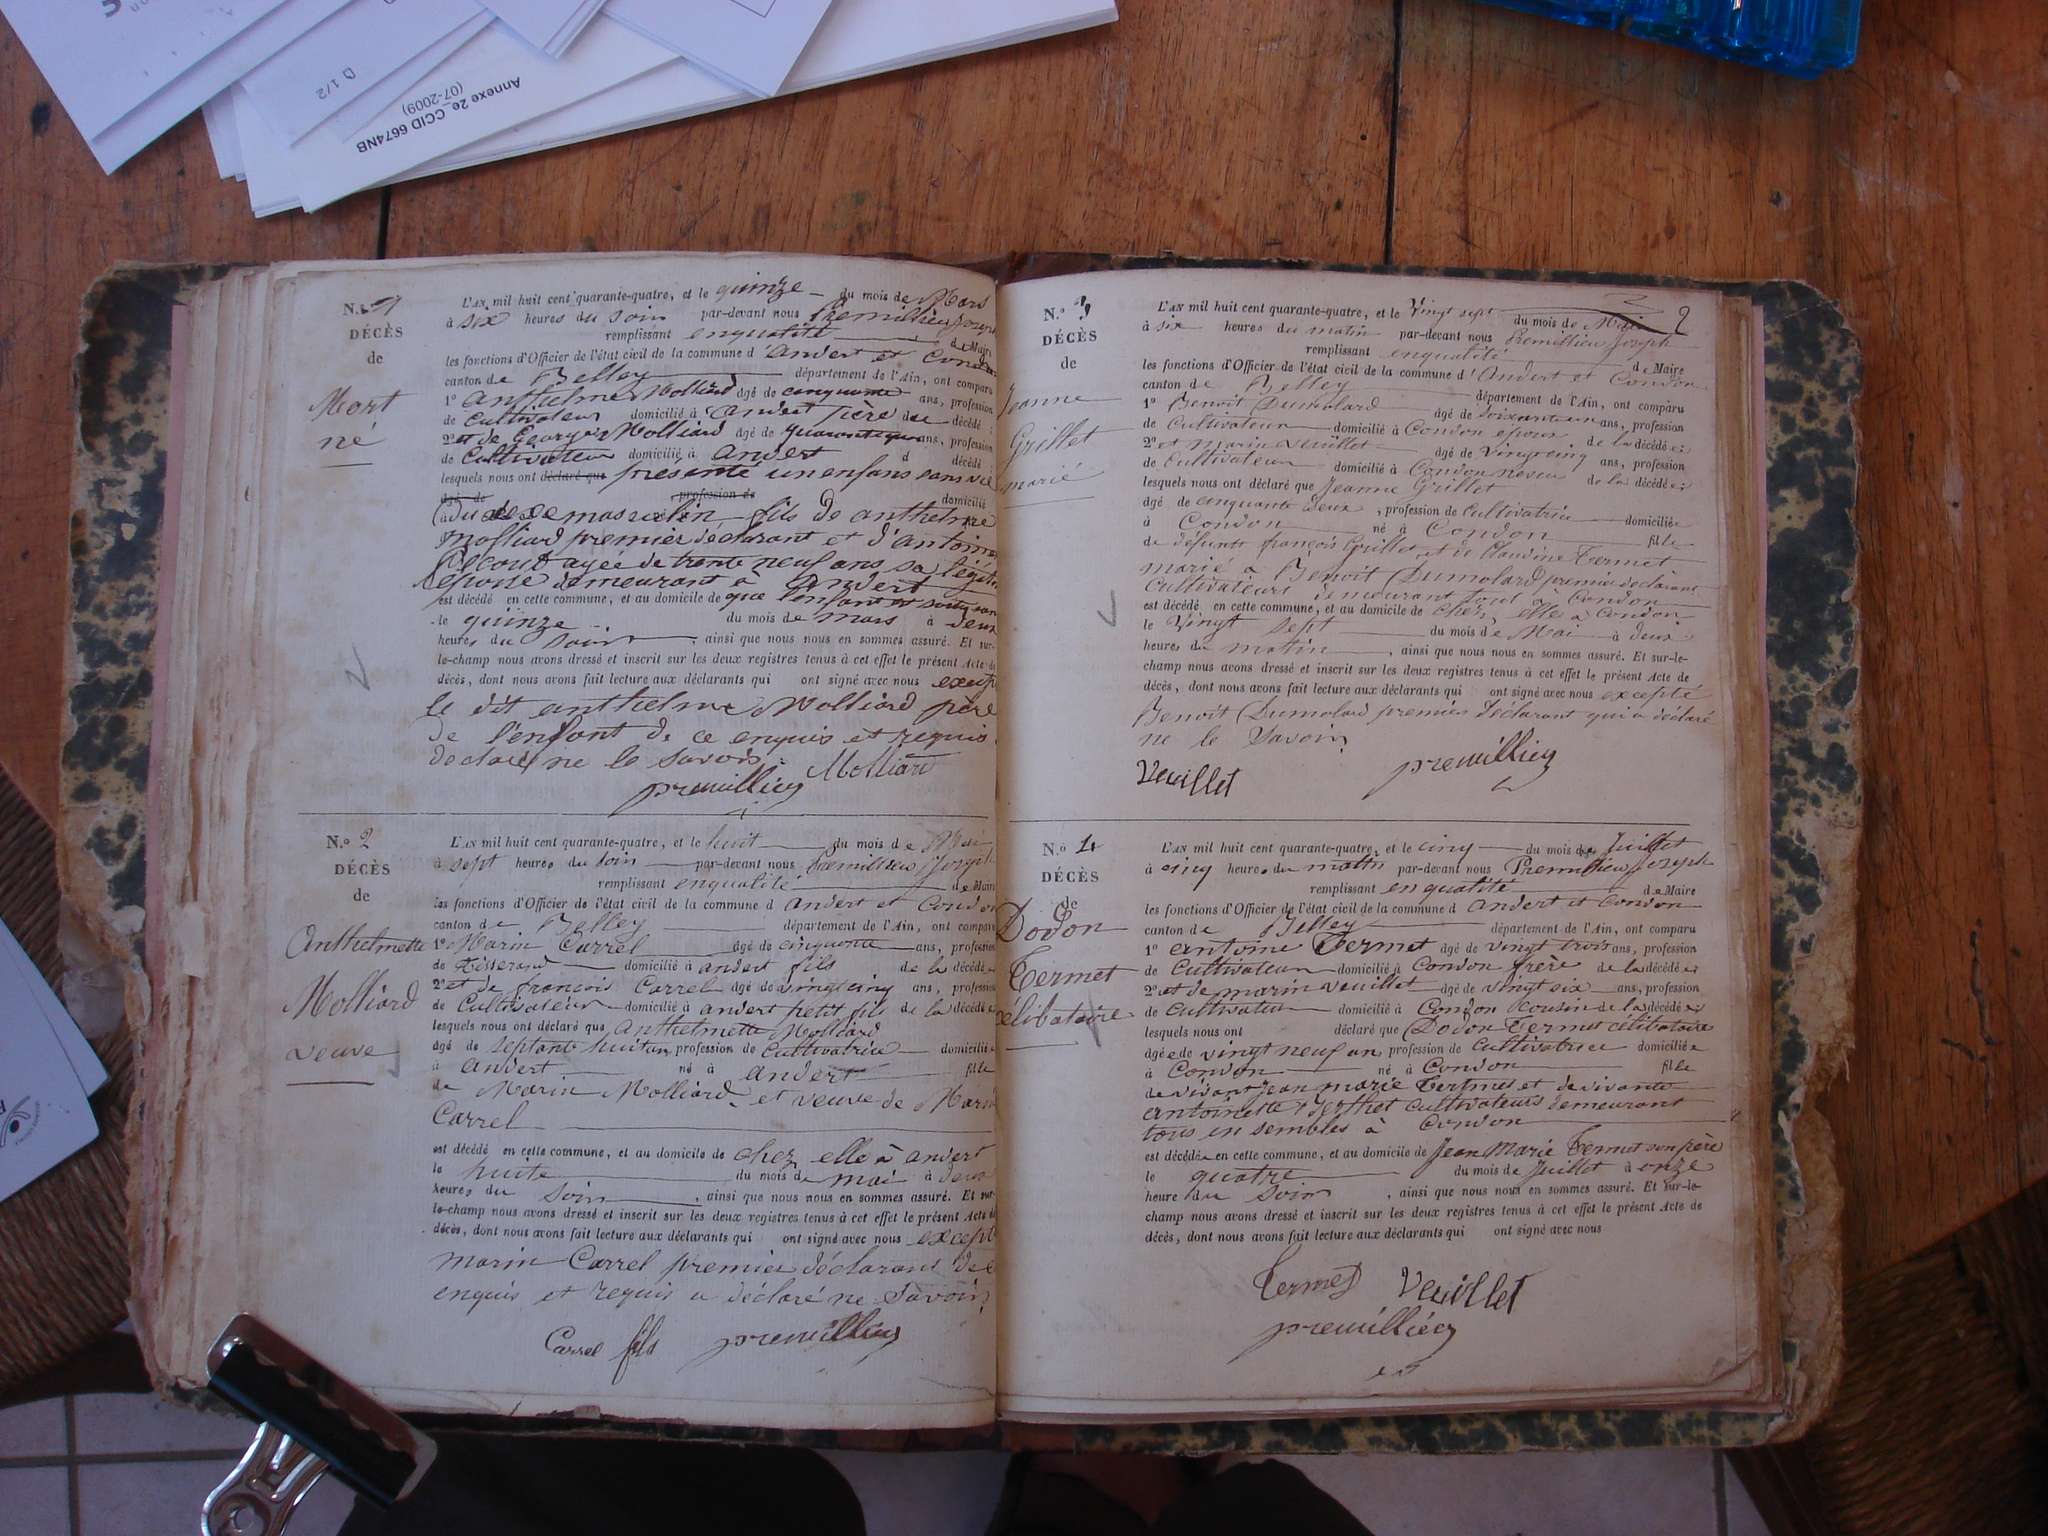 Annexe 2e_CCID 6674NB
(07-2009)
D 1/2
N.o 1
DÉCÈS
de
Mort
né
L'AN mil huit cent quarante-quatre, et le quinze du mois de Mars
à six heures du soir par-devant nous Premillieu Joseph
remplissant enqualité de Maire
les fonctions d'Officier de l'état civil de la commune d'andert et Condon
canton de Belley département de l'Ain, ont comparu
1o anthelme Molliard âgé de cinquante ans, profession
de Cultivateur domicilié à andert père du décédé
2o et de George Molliard âgé de quarante ans, profession
de Cultivateur domicilié à andert d décédé
lesquels nous ont déclaré que présenté un enfans sans vie
âgé de profession de domicilié
du sexe masculin fils de anthelme
molliard premier déclarant et d'antoinette
agée de trente neuf ans sa légitime
épouse demeurant à andert
est décédé en cette commune, et au domicile de que l'enfant est sorti
le quinze du mois de mars à deux
heures du soir, ainsi que nous nous en sommes assuré. Et sur-
le-champ nous avons dressé et inscrit sur les deux registres tenus à cet effet le présent Acte de
décès, dont nous avons fait lecture aux déclarants qui ont signé avec nous excepté
le dit anthelme Molliard père
de l'enfant de ce enquis et requis
declare ne le savoir.
Molliard
premillieu
N.o 2
DÉCÈS
de
Anthelmette
Molliard
veuve
L'AN mil huit cent quarante-quatre, et le huit du mois de Mai
à sept heures du soir par-devant nous Premillieu Joseph
remplissant enqualité de Maire
les fonctions d'Officier de l'état civil de la commune d andert et Condon
canton de Belley département de l'Ain, ont comparu
1o Marin Carrel âgé de cinquante ans, profession
de Tisserand domicilié à andert fils de la décédée
2o et de françois Carrel âgé de vingt cinq ans, profession
de Cultivateur domicilié à andert petit fils de la décédée
lesquels nous ont déclaré que Anthelmette Molliard
âgé de septante huit an profession de Cultivatrice domiciliée
à andert né à andert fille
de Marin Molliard et veuve de Marin
Carrel
est décédé en cette commune, et au domicile de chez elle à andert
le huite du mois de mai à deux
heures du soir, ainsi que nous nous en sommes assuré. Et sur-
le-champ nous avons dressé et inscrit sur les deux registres tenus à cet effet le présent Acte de
décès, dont nous avons fait lecture aux déclarants qui ont signé avec nous excepté
marin Carrel premier déclarant de ce
enquis et requis a déclaré ne savoir
Carrel fils premillieu
2
N.o 3
DÉCÈS
de
Jeanne
Grillet
marié
L'AN mil huit cent quarante-quatre, et le Vingt sept du mois de Mai
à six heures du matin par-devant nous Premillieu Joseph
remplissant enqualité de Maire
les fonctions d'Officier de l'état civil de la commune d'Andert et Condon
canton de Belley département de l'Ain, ont comparu
1o Benoit Dumolard âgé de soixante un ans, profession
de Cultivateur domicilié à Condon epoux de la décédée
2o et marin veuillet âgé de vingt cinq ans, profession
de Cultivateur domicilié à Condon neveu de la décédée
lesquels nous ont déclaré que Jeanne Grillet
âgé de cinquante deux, profession de Cultivatrice domiciliée
à Condon né à Condon fille
de défunts françois Grillet et de Claudine Termet
marié à Benoit Dumolard premier déclarant
Cultivateurs demeurant tout à Condon
est décédé en cette commune, et au domicile de chez elle à Condon
le Vingt sept du mois de Mai à deux
heures du matin, ainsi que nous nous en sommes assuré. Et sur-le-
champ nous avons dressé et inscrit sur les deux registres tenus à cet effet le présent Acte de
décès, dont nous avons fait lecture aux déclarants qui ont signé avec nous excepté
Benoit Dumolard premier déclarant qui a déclaré
ne le savoir
Veuillet premillieu
N.o 4
DÉCÈS
de
Dodon
Termet
célibataire
L'AN mil huit cent quarante-quatre, et le cinq du mois de Juillet
à cinq heures du matin par-devant nous Premillieu Joseph
remplissant en qualité de Maire
les fonctions d'Officier de l'état civil de la commune d andert et Condon
canton de Belley département de l'Ain, ont comparu
1o antoine Termet âgé de vingt trois ans, profession
de Cultivateur domicilié à Condon frère de la décédée
2o et de marin veuillet âgé de vingt six ans, profession
de Cultivateur domicilié à Condon Cousin de la décédée
lesquels nous ont déclaré que Dodon Termet célibataire
âgée de vingt neuf an profession de Cultivatrice domiciliée
à Condon né à Condon fille
de vivant Jean marie Termet et de vivante
antoinette Berthet cultivateurs demeurant
tous en sembles à Condon
est décédée en cette commune, et au domicile de Jean Marie Termet son père
le quatre du mois de Juillet à onze
heure du Soir, ainsi que nous nous en sommes assuré. Et sur-le-
champ nous avons dressé et inscrit sur les deux registres tenus à cet effet le présent Acte de
décès, dont nous avons fait lecture aux déclarants qui ont signé avec nous
Termet Veuillet
premillieu